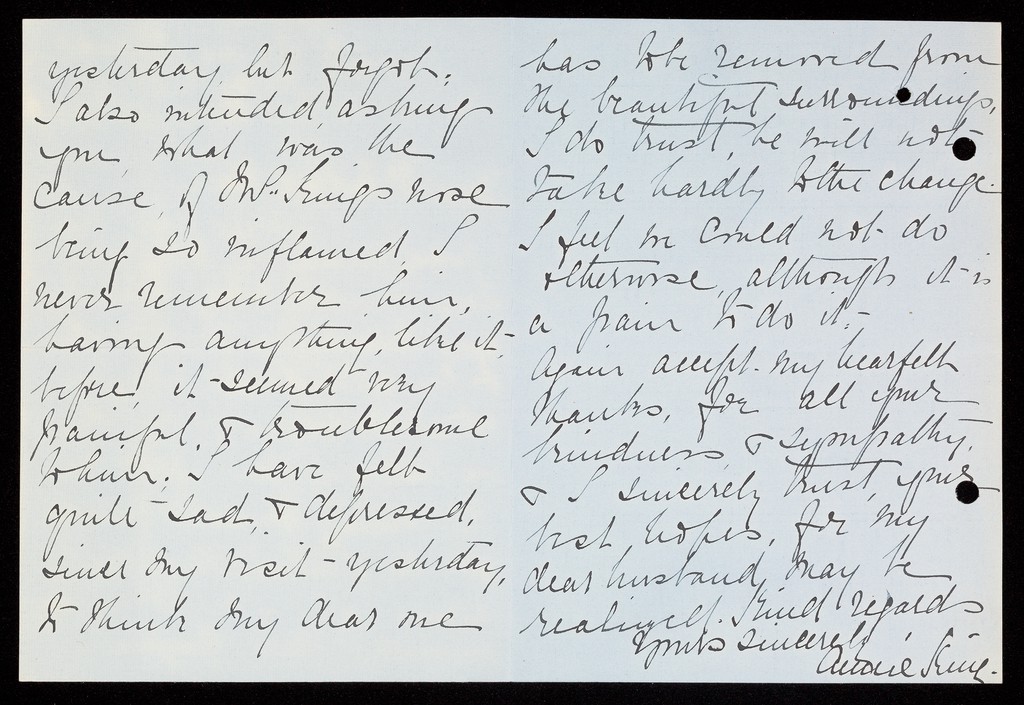 yesterday, but forgot.
I also intended, asking
you, what was the
cause, of Mr. Kings nose
being so inflamed, I
never remember him,
having anything, like it,
before, it seemed very
painful, & troublesome
to him. I have felt
quite sad, & depressed,
since my visit - yesterday,
to think my dear one
has to be removed from
the beautiful surroundings,
I do trust, he will not
take hardly to the change.
I feel we could not do
otherwise, although it is
a pain to do it.
Again accept my hearfelt
thanks, for all your
kindness & sympathy,
& I sincerely trust, your
best hopes, for my
dear husband, may be
realised. Kind regards
Yours sincerely,
Annie King.